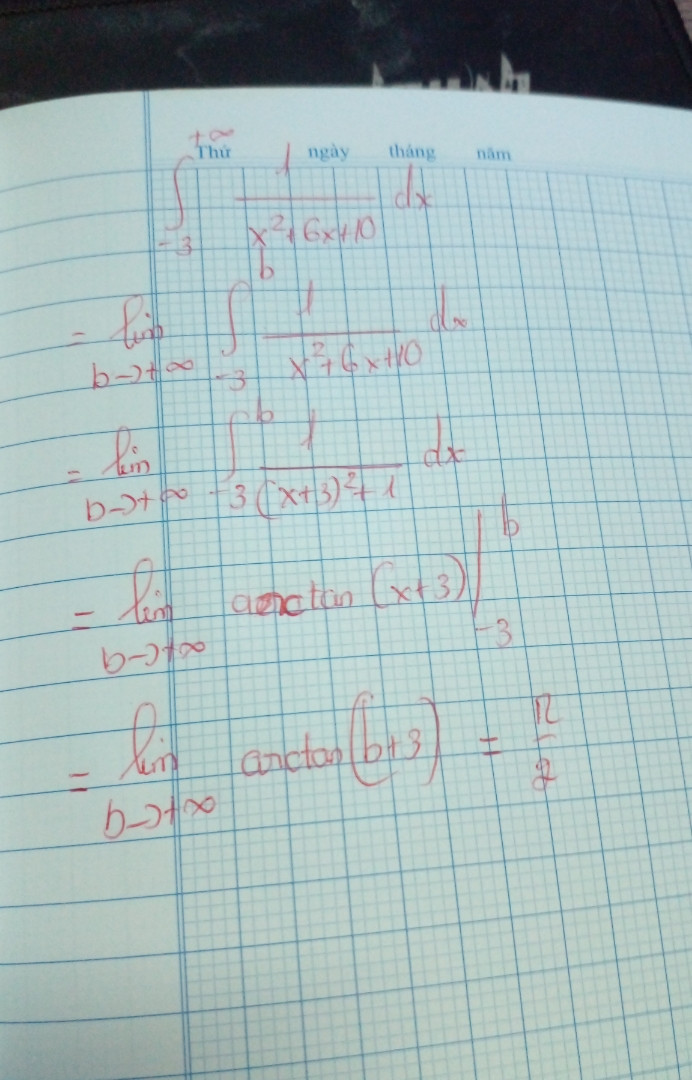 Thứ ngày tháng năm
∫_{-3}^{+∞} 1/(x²+6x+10) dx
= lim_{b→+∞} ∫_{-3}^{b} 1/(x²+6x+10) dx
= lim_{b→+∞} ∫_{-3}^{b} 1/((x+3)²+1) dx
= lim_{b→+∞} arctan (x+3) |_{-3}^{b}
= lim_{b→+∞} arctan(b+3) = π/2